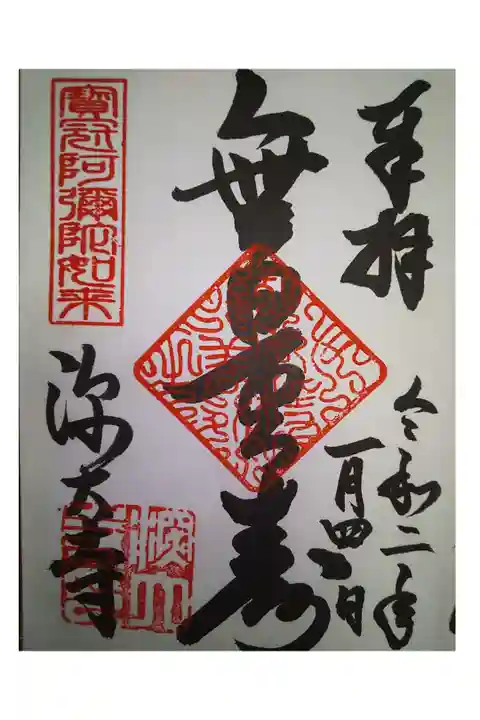 奉拝
令和二年
一月四日
無量寿
寳冠阿彌陀如来
深大寺